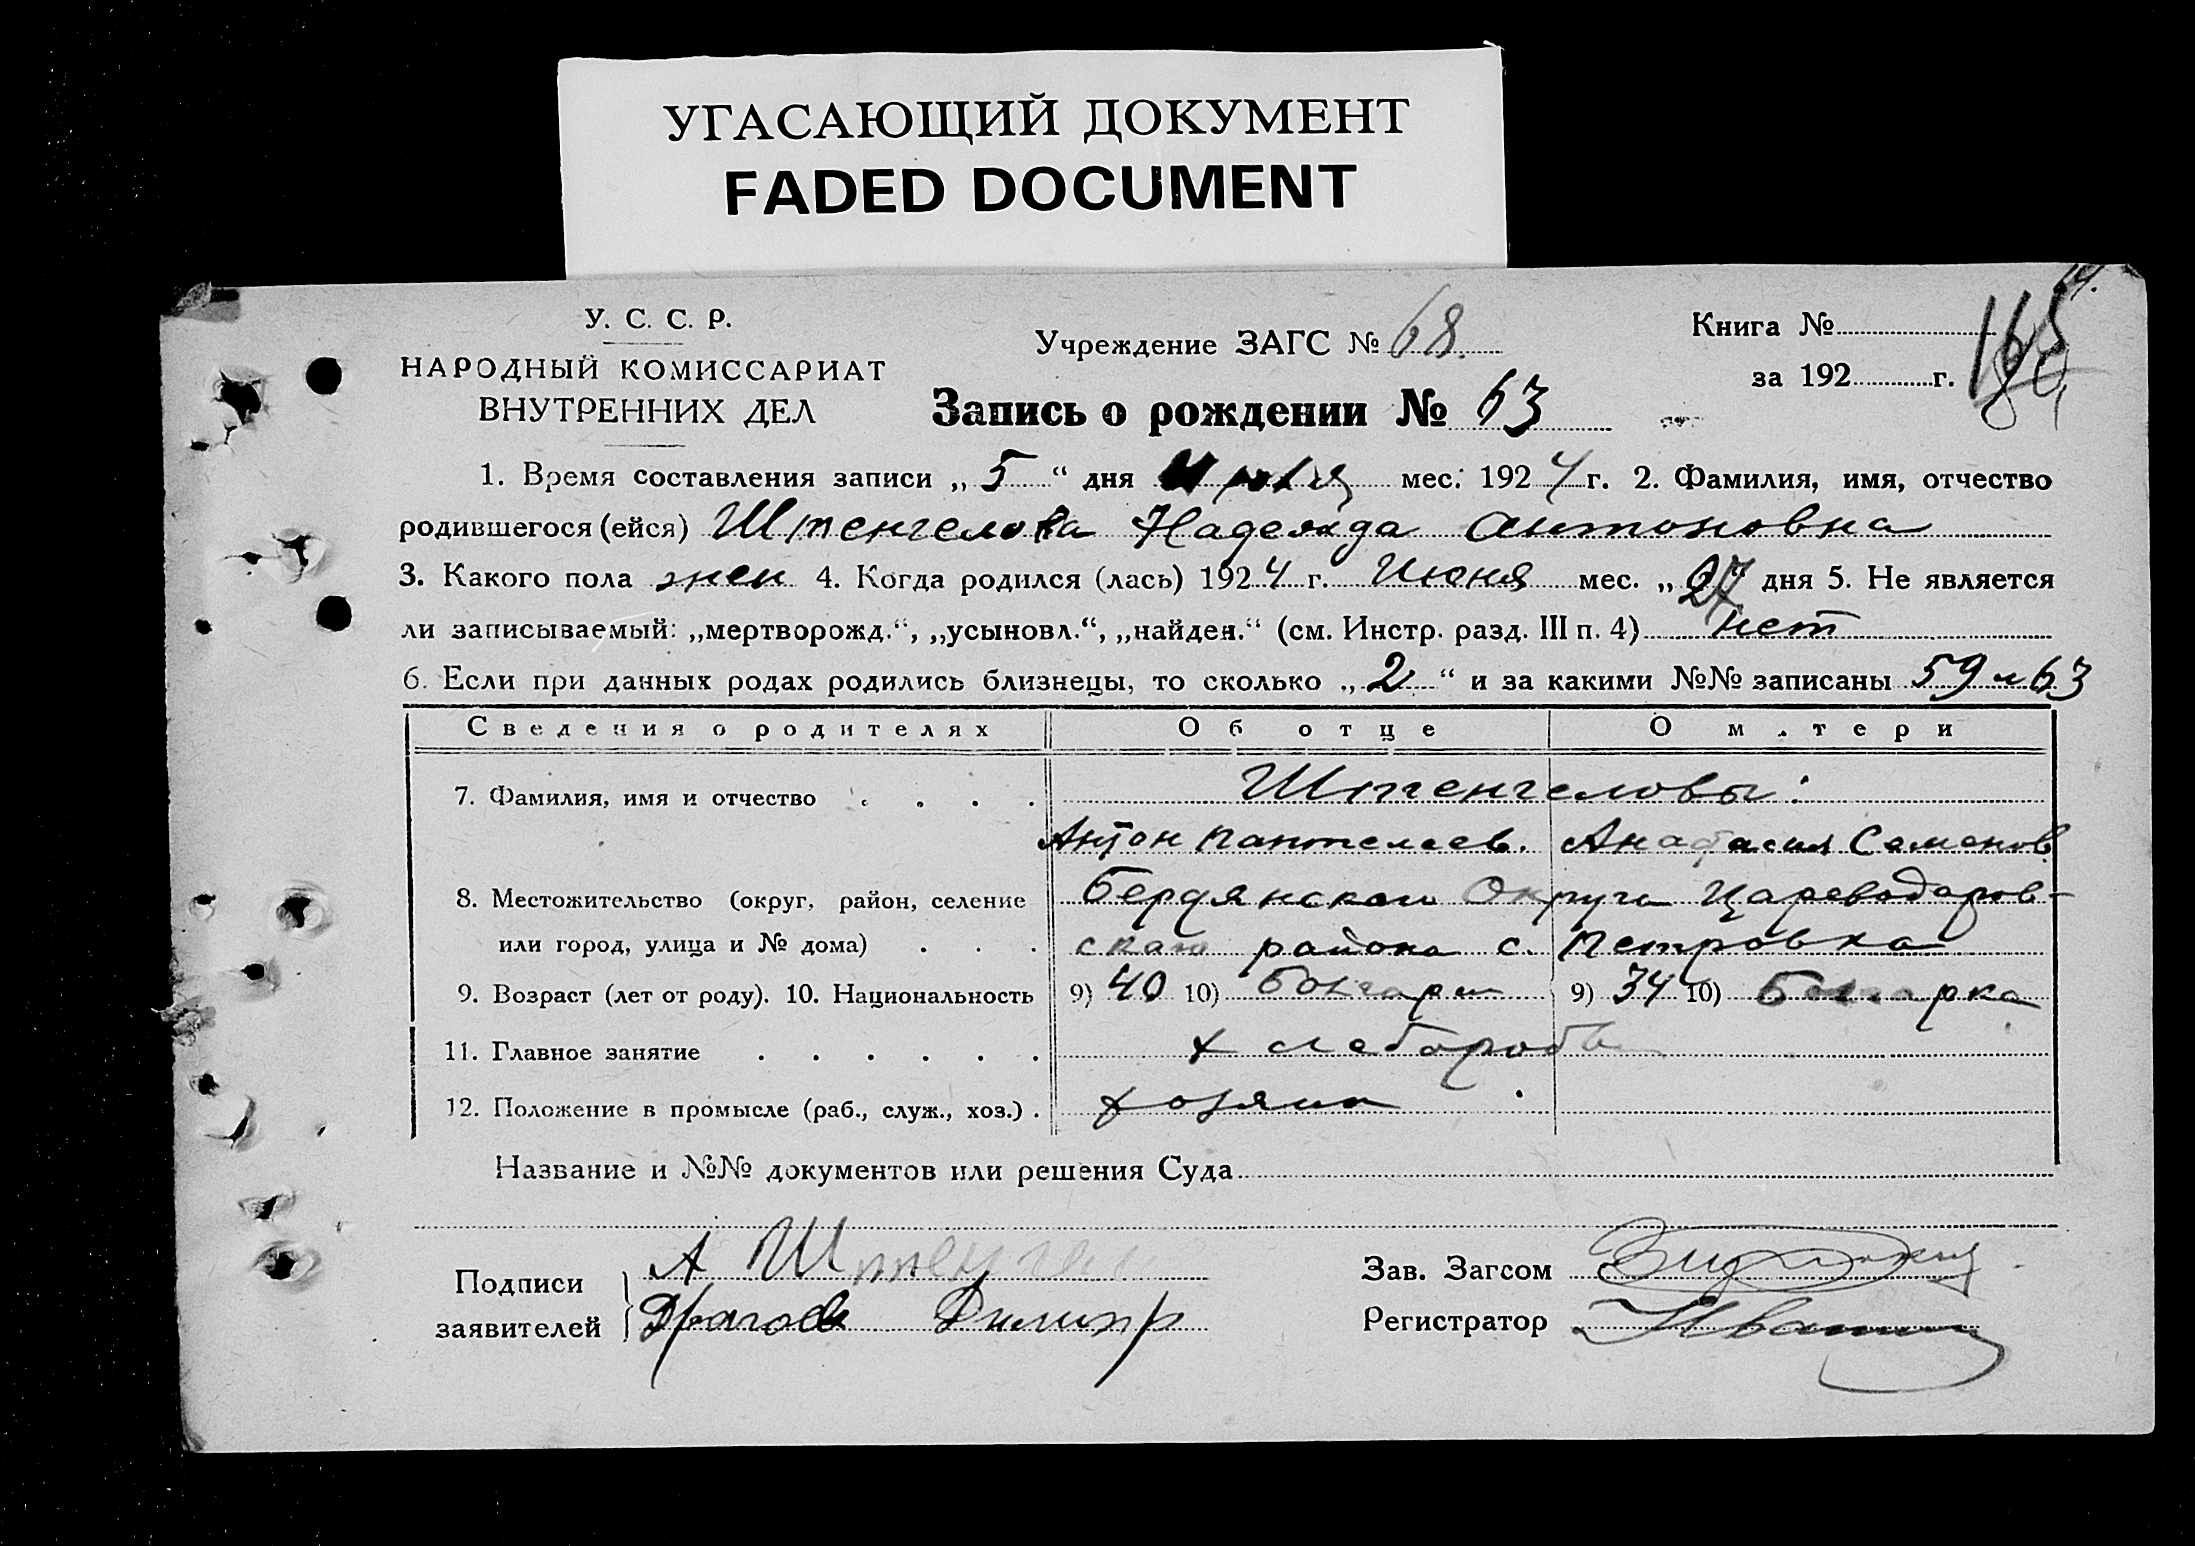 УГАСАЮЩИЙ ДОКУМЕНТ
FADED DOCUMENT
У. С. С. Р.
НАРОДНЫЙ КОМИССАРИАТ
ВНУТРЕННИХ ДЕЛ
Учреждение ЗАГС № 68.
Книга №
за 192 г.
Запись о рождении № 63
1. Время составления записи „ 5 “ дня Июля мес. 1924 г. 2. Фамилия, имя, отчество
родившегося (ейся) Штенгелова Надежда Антоновна
3. Какого пола жен 4. Когда родился (лась) 1924 г. Июня мес. „ 27 “ дня 5. Не является
ли записываемый: „мертворожд.“, „усыновл.“, „найден.“ (см. Инстр. разд. III п. 4) нет
6. Если при данных родах родились близнецы, то сколько „ 2 “ и за какими №№ записаны 59 и 63
Сведения о родителях Об отце О м.тери
7. Фамилия, имя и отчество . . . . Штенгеловы:
Антон Пантелеев. Анастасия Семенов
8. Местожительство (округ, район, селение Бердянскаго Округа Цареводаров-
или город, улица и № дома) . . . скаго района с. Петровка
9. Возраст (лет от роду). 10. Национальность 9) 40 10) Болгарин 9) 34 10) Болгарка
11. Главное занятие . . . . . . хлебороб
12. Положение в промысле (раб., служ., хоз.) . хозяин
Название и №№ документов или решения Суда
Подписи А Штенгелов
заявителей Драгов Димитр
Зав. Загсом
Регистратор